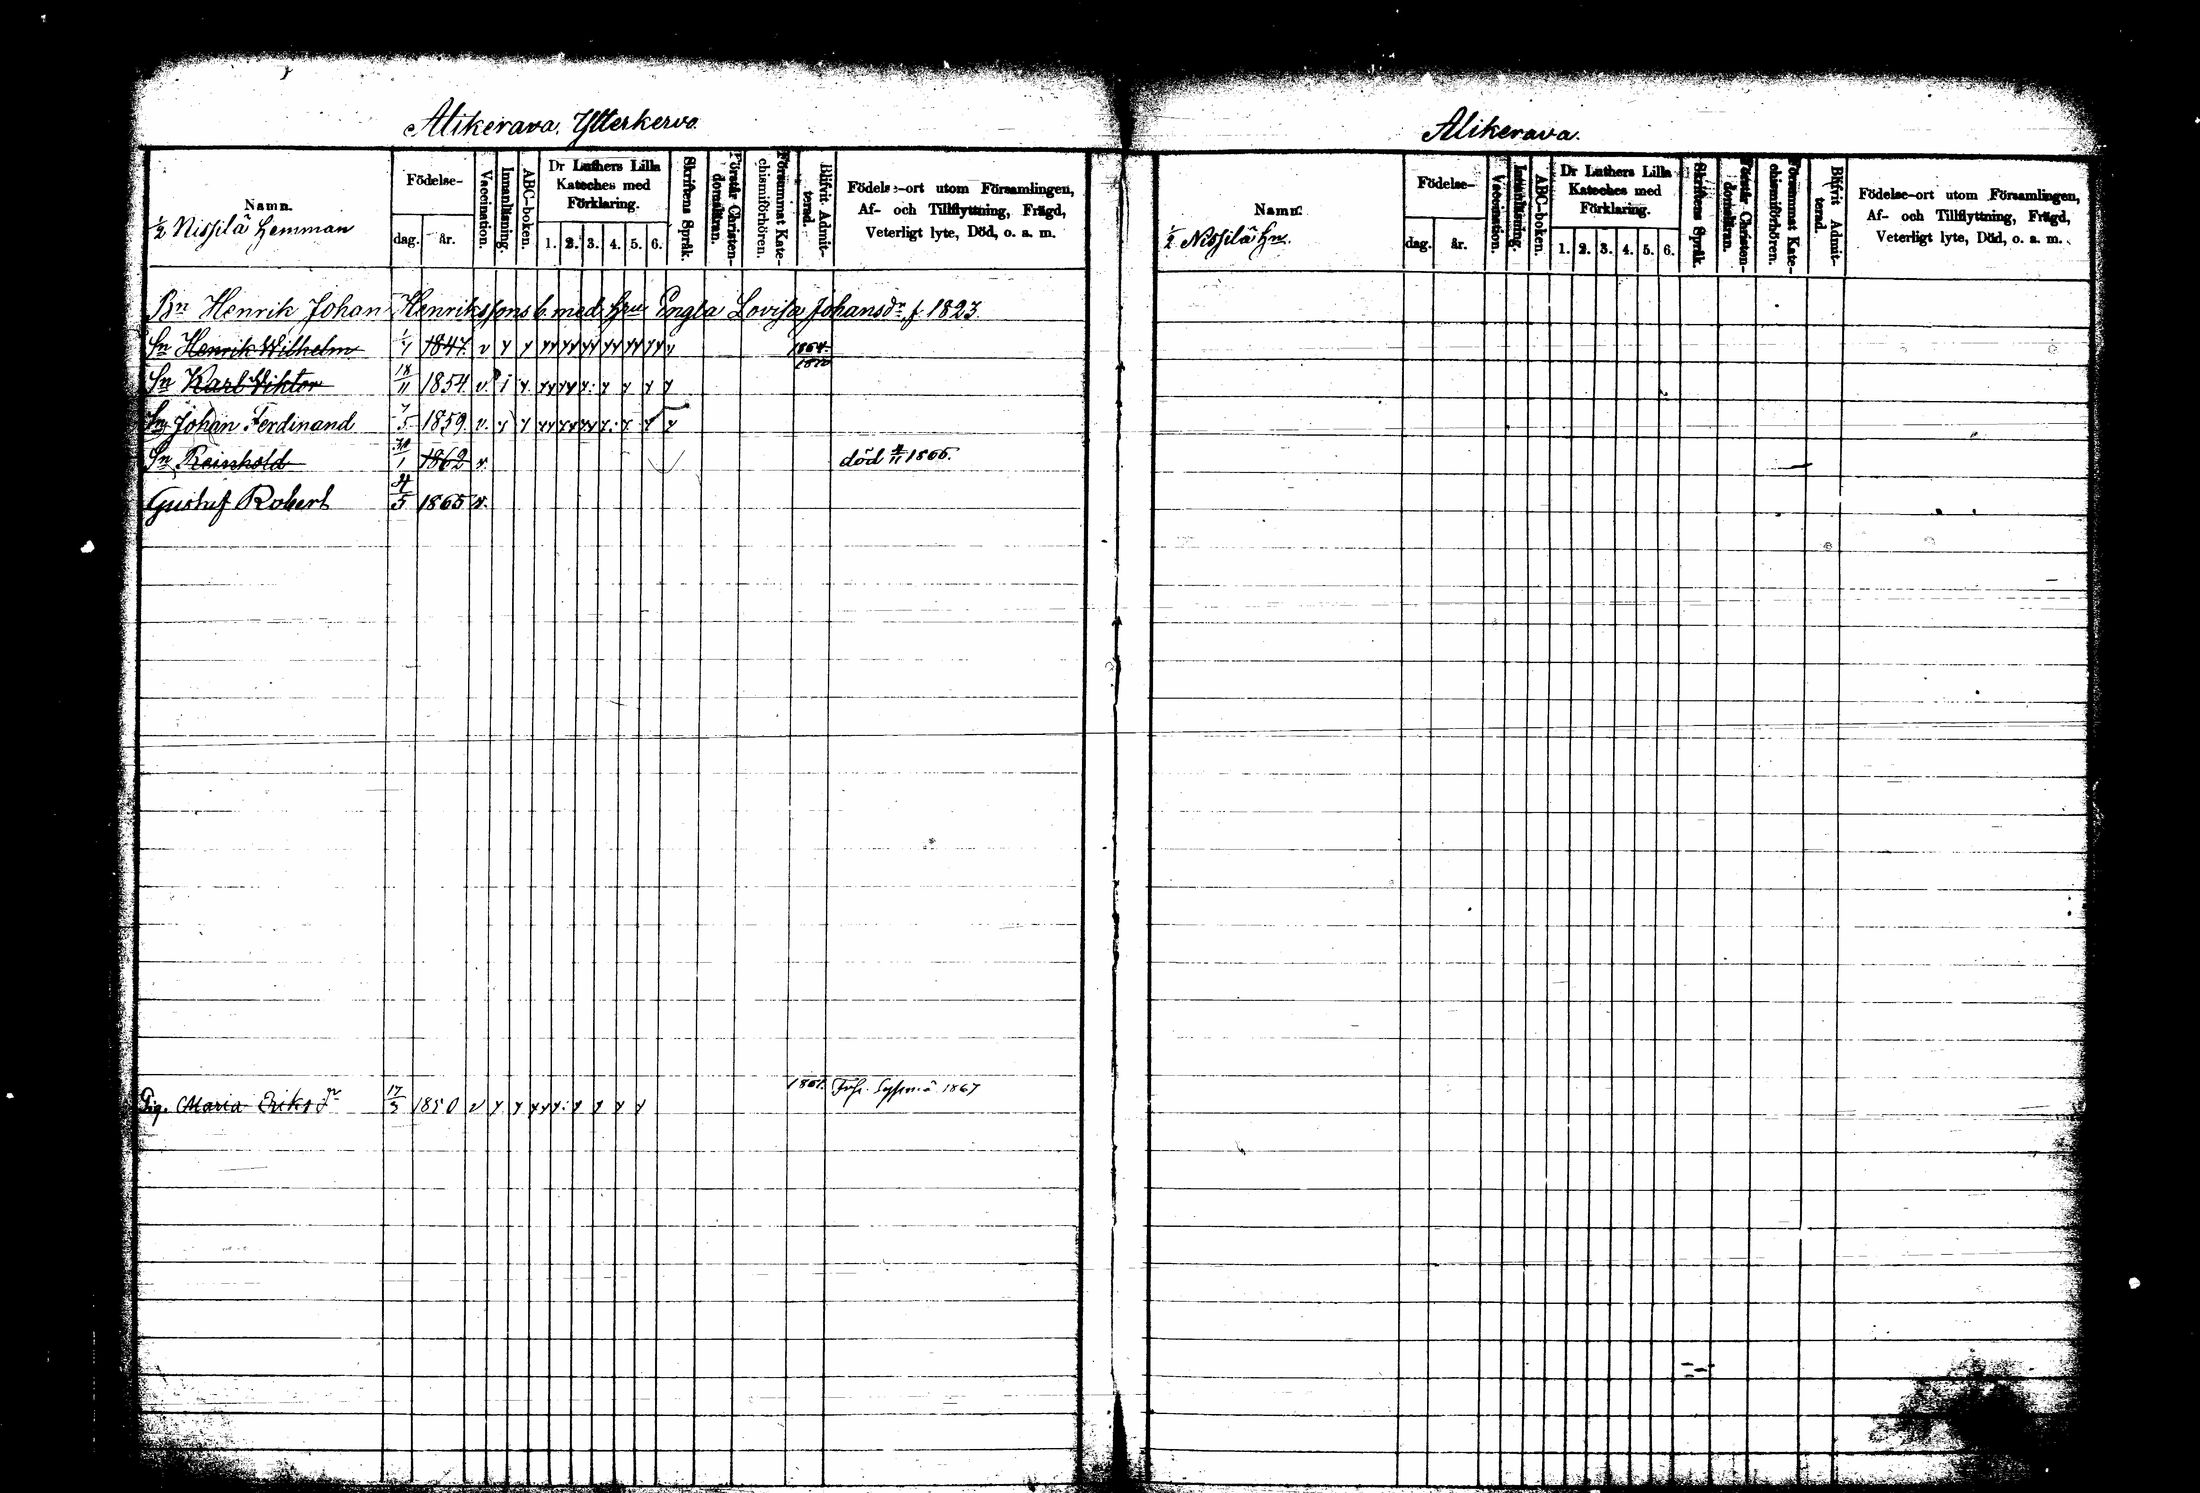 Alikerava. Ytterkervo.
Namn.
1/2 Nissilä Hemman
Födelse-
dag. år.
Vaccination.
Innanläsning.
ABC-boken.
Dr Luthers Lilla Kateches med Förklaring.
1. 2. 3. 4. 5. 6.
Skriftens Språk.
Förstår Christen-domsläran.
Försummat Kate-chismiförhören.
Blifvit Admit-terad.
Födelse-ort utom Församlingen,
Af- och Tillflyttning, Frägd,
Veterligt lyte, Död, o. a. m.
Bn Henrik Johan Henrikssons b. med Hru Engla Lovisa Johansdr f 1823
Sn Henrik Wilhelm 1/1 1847. v 1864
Sn Karl Viktor 18/11 1854. v 1870
Sn Johan Ferdinand 7/5 1859. v.
Sn Reinhold 30/1 1862 v. död 4/11 1866.
Gustaf Robert 24/5 1865 v.
Pig. Maria Eriksdr 17/3 1850 v 1867
Alikerava.
Namn.
1/2 Nissilä Hn.
Födelse-
dag. år.
Vaccination.
Innanläsning.
ABC-boken.
Dr Luthers Lilla Kateches med Förklaring.
1. 2. 3. 4. 5. 6.
Skriftens Språk.
Förstår Christen-domsläran.
Försummat Kate-chismiförhören.
Blifvit Admit-terad.
Födelse-ort utom Församlingen,
Af- och Tillflyttning, Frägd,
Veterligt lyte, Död, o. a. m.